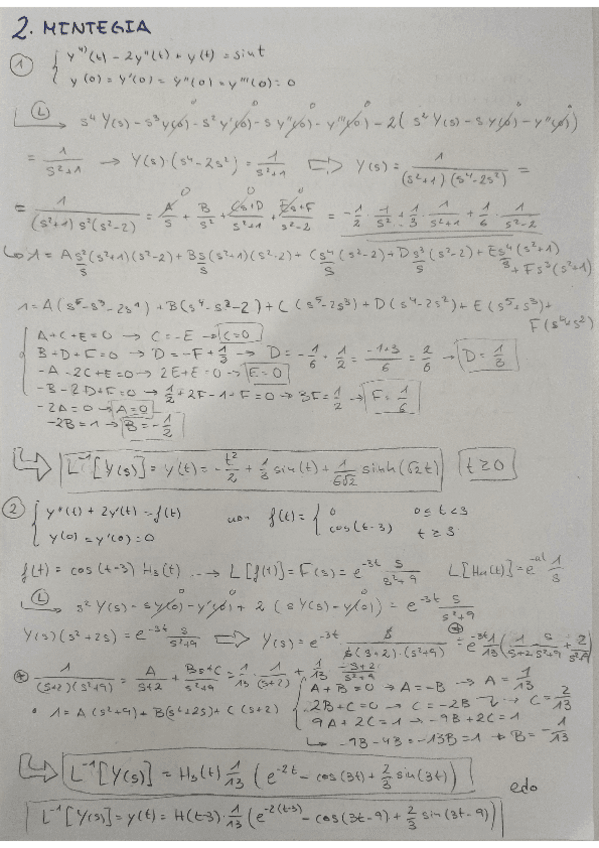 2. MINTEGIA
① { y⁴⁾(t) - 2y''(t) + y(t) = sin t
y(0) = y'(0) = y''(0) = y'''(0) = 0
Ⓛ → s⁴ Y(s) - s³ y(0) - s² y'(0) - s y''(0) - y'''(0) - 2( s² Y(s) - s y(0) - y'(0))
= 1/(s²+1) → Y(s) (s⁴-2s²) = 1/(s²+1) ⇒ Y(s) = 1/((s²+1)(s⁴-2s²)) =
= 1/((s²+1) s² (s²-2)) = A/s + B/s² + (Cs+D)/(s²+1) + (Es+F)/(s²-2) = -1/2 · 1/s² + 1/3 · 1/(s²+1) + 1/6 · 1/(s²-2)
1 = A s²/s (s²+1)(s²-2) + B s/s (s²+1)(s²-2) + C s⁴/s (s²-2) + D s³/s (s²-2) + E s⁴/s (s²+1)
+ F s³ (s²+1)
1 = A(s⁵-s³-2s) + B(s⁴-s²-2) + C(s⁵-2s³) + D(s⁴-2s²) + E(s⁵+s³) +
F(s⁴+s²)
A+C+E=0 → C=-E → C=0
B+D+F=0 → D = -F + 1/2 → D = -1/6 + 1/2 = (-1+3)/6 = 2/6 → D = 1/3
-A-2C+E=0 → 2E+E=0 → E=0
-B-2D+F=0 → 1/2 + 2F - 1 + F = 0 → 3F = 1/2 → F = 1/6
-2A=0 → A=0
-2B=1 → B = -1/2
L⁻¹[Y(s)] = y(t) = -t/2 + 1/3 sin(t) + 1/(6√2) sinh(√2t) t≥0
② { y''(t) + 2y'(t) = f(t) non f(t) = { 0 0≤t<3
y(0) = y'(0) = 0 cos(t-3) t≥3
f(t) = cos(t-3) H₃(t) ... → L[f(t)] = F(s) = e^-3t s/(s²+9) L[Ha(t)] = e^-at 1/s
Ⓛ → s² Y(s) - s y(0) - y'(0) + 2 (s Y(s) - y(0)) = e^-3t s/(s²+9)
Y(s)(s²+2s) = e^-3t s/(s²+9) ⇒ Y(s) = e^-3t s/(s(s+2)·(s²+9)) = e^-3t 1/13 (1/(s+2) - s/(s²+9) + 2/(s²+9))
⊛ 1/((s+2)(s²+9)) = A/(s+2) + (Bs+C)/(s²+9) = 1/13 · 1/(s+2) + 1/13 · (-s+2)/(s²+9)
A+B=0 → A=-B → A = 1/13
• 1 = A(s²+9) + B(s²+2s) + C(s+2) 2B+C=0 → C=-2B → C = 2/13
9A+2C=1 → -9B+2C=1
↳ -9B-4B = -13B = 1 → B = -1/13
L⁻¹[Y(s)] = H₃(t) 1/13 (e^-2t - cos(3t) + 2/3 sin(3t)) edo
L⁻¹[Y(s)] = y(t) = H(t-3) · 1/13 (e^-2(t-3) - cos(3t-9) + 2/3 sin(3t-9))